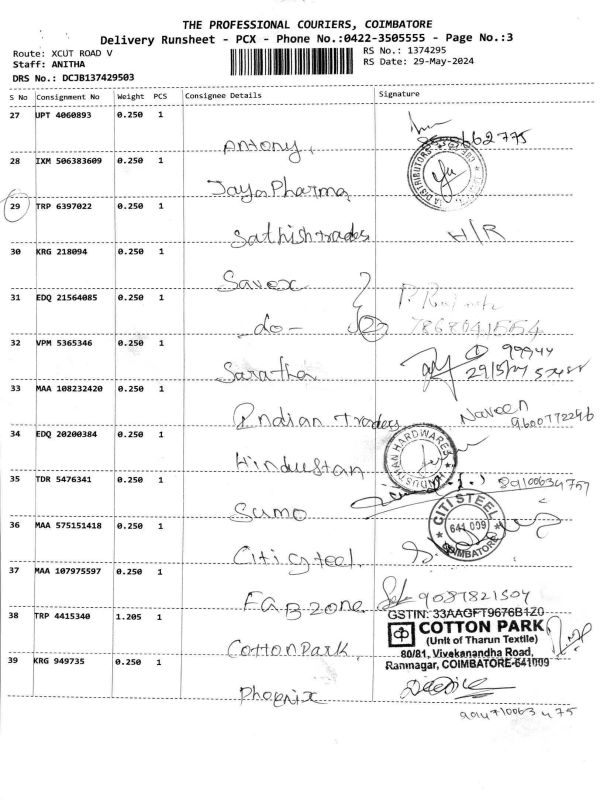 THE PROFESSIONAL COURIERS, COIMBATORE
Delivery Runsheet - PCX - Phone No.:0422-3505555 - Page No.:3
Route: XCUT ROAD V
RS No.: 1374295
Staff: ANITHA
RS Date: 29-May-2024
DRS No.: DCJB137429503
S No Consignment No Weight PCS Consignee Details Signature
27 UPT 4060893 0.250 1
Antony,
28 IXM 506383609 0.250 1
Jaya Pharma
29 TRP 6397022 0.250 1
Sathish trades H/R
30 KRG 218094 0.250 1
Savex
31 EDQ 21564085 0.250 1
-do- 2
32 VPM 5365346 0.250 1
99944
29/5/24
33 MAA 108232420 0.250 1
Indian Traders Naveen
9600772296
34 EDQ 20200384 0.250 1
Hindustan
HINDUSTHAN HARDWARES
35 TDR 5476341 0.250 1
Sumo
36 MAA 575151418 0.250 1
Citi Steel
CITI STEEL
641 009
COIMBATORE
37 MAA 107975597 0.250 1
FAB zone 9087821504
38 TRP 4415340 1.205 1
Cotton Park,
GSTIN: 33AAGFT9676B1Z0
COTTON PARK
(Unit of Tharun Textile)
80/81, Vivekanandha Road,
Ramnagar, COIMBATORE-641009
39 KRG 949735 0.250 1
Phoenix